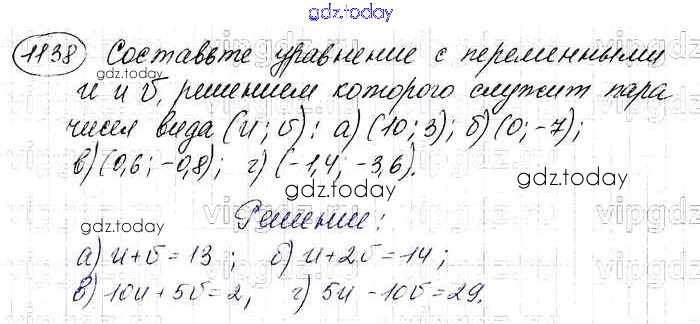 gdz.today
1138 Составьте уравнение с переменными
u и v, решением которого служит пара
чисел вида (u; v): а) (10; 3); б) (0; -7);
в) (0,6; -0,8); г) (-1,4; -3,6).
gdz.today
gdz.today
gdz.today
Решение:
а) u+v=13; б) u+2v=14;
в) 10u+5v=2, г) 5u-10v=29.
gdz.today
gdz.today